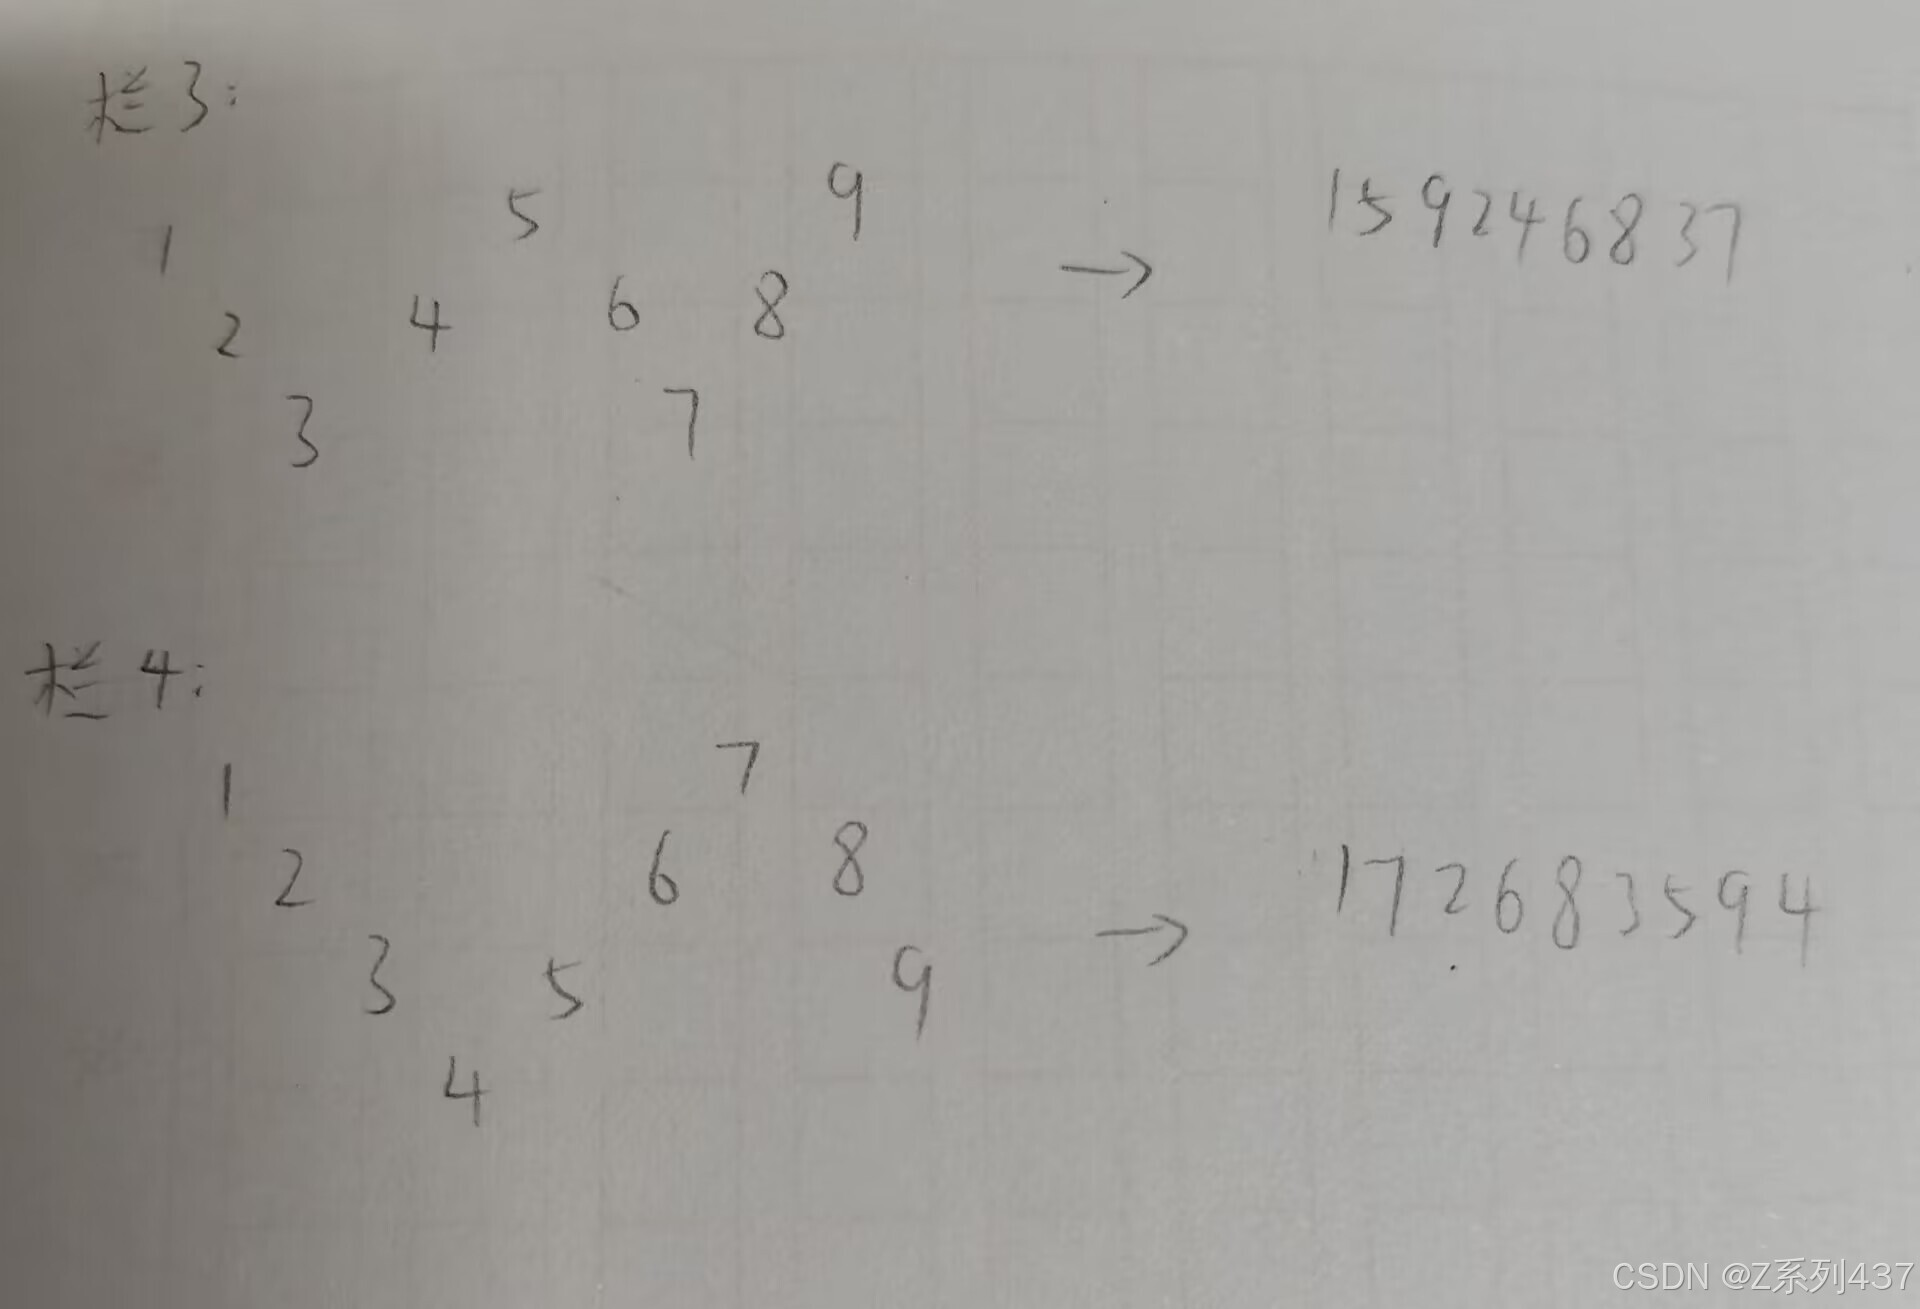 栏3:
1 5 9 → 159246837
2 4 6 8
3 7
栏4:
1 7
2 6 8 → 172683594
3 5 9
4
CSDN @Z系列437